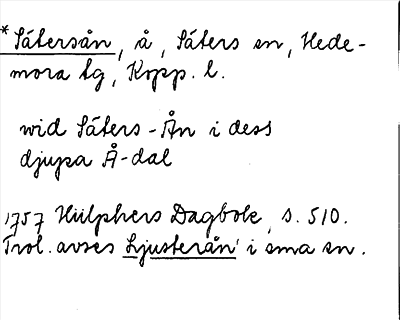 *Sätersån, å, Säters sn, Hede-
mora tg, Kopp. l.
wid Säters-Ån i dess
djupa Å-dal
1757 Hülphers Dagbok, s. 510.
Trol. avses Ljusterån i sma sn.